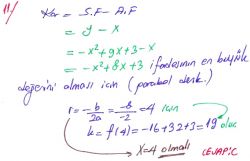 11/ Kar = S.F - A.F
= y - x
= -x²+9x+3-x
= -x²+8x+3 ifadesinin en büyük
değerini alması için (parabol denk.)
r = -b/2a = -8/-2 = 4 için
k = f(4) = -16+32+3 = 19 olur
x=4 olmalı
CEVAP:C